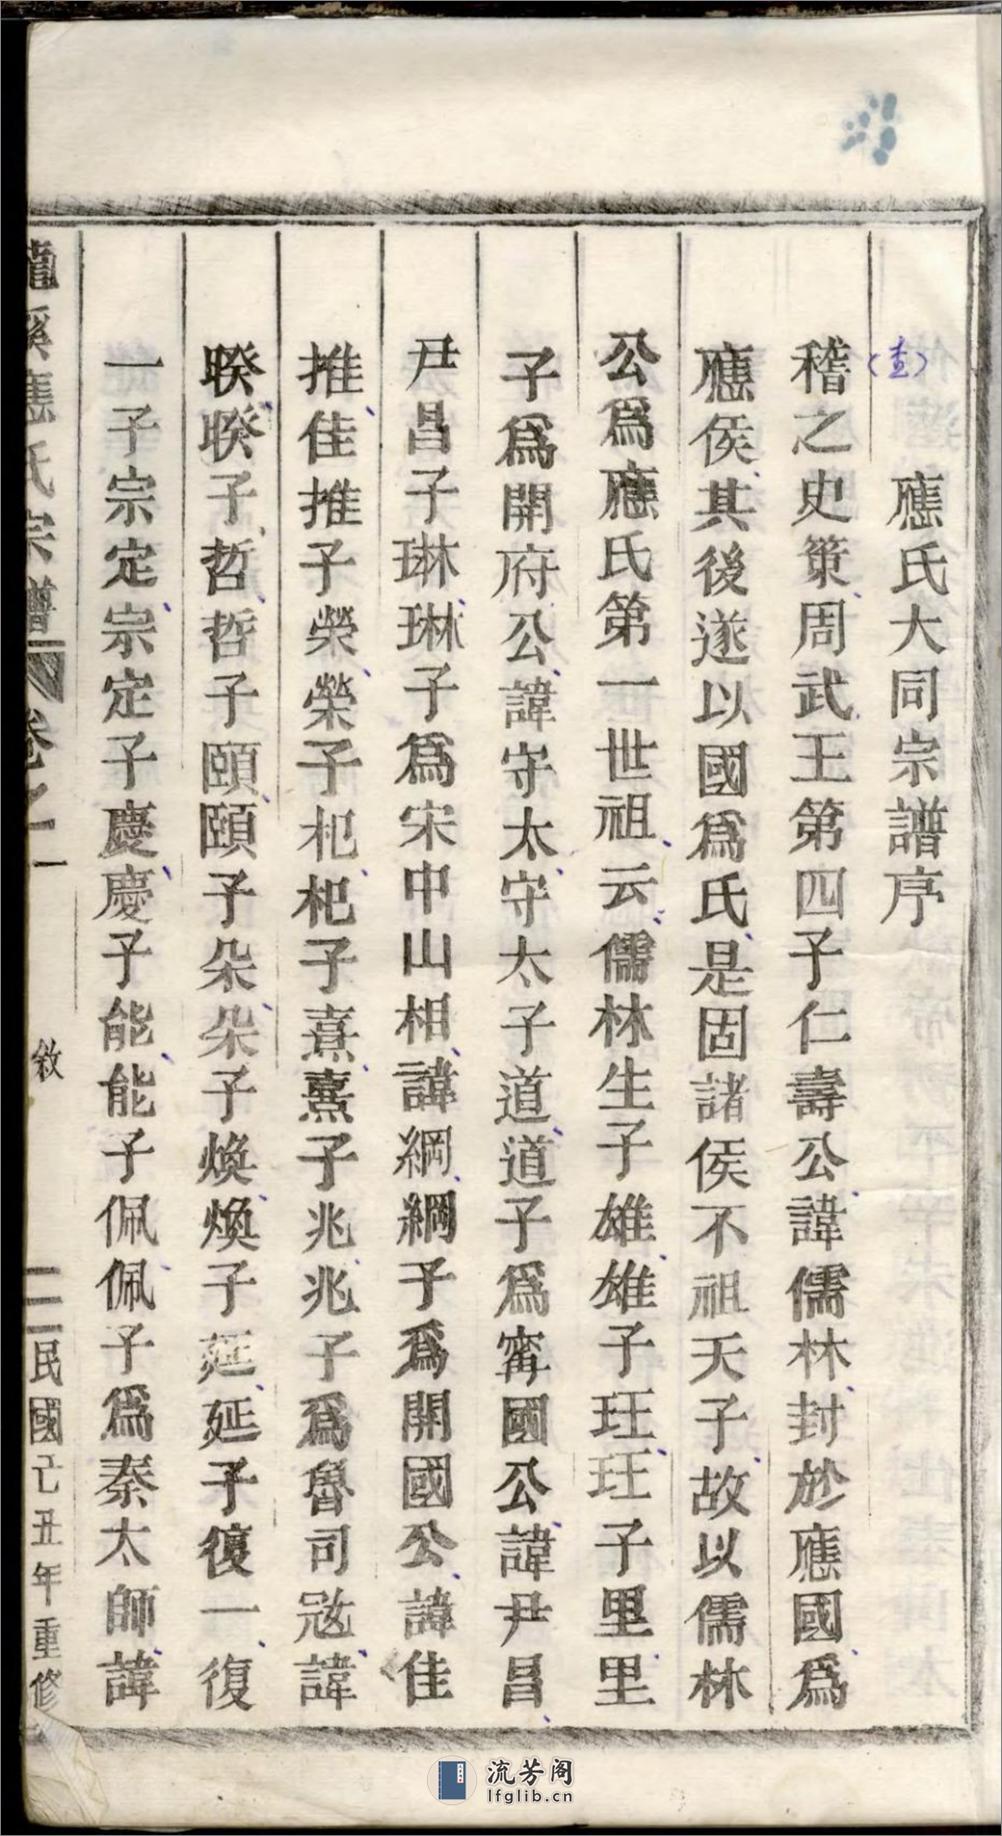 (查)
應氏大同宗譜序
稽之史策周武王第四子仁壽公諱儒林封於應國為
應侯其後遂以國為氏是固諸侯不祖天子故以儒林
公為應氏第一世祖云儒林生子雄雄子玨玨子里里
子為開府公諱守太守太子道道子為甯國公諱尹昌
尹昌子琳琳子為宋中山相諱綱綱子為開國公諱佳
推佳推子榮榮子杞杞子熹熹子兆兆子為魯司宼諱
暌暌子哲哲子頤頤子朵朵子煥煥子延延子復一復
一子宗定宗定子慶慶子能能子佩佩子為秦太師諱
龍溪應氏宗譜 卷之一 敘 二 民國己丑年重修
流芳阁
lfglib.cn